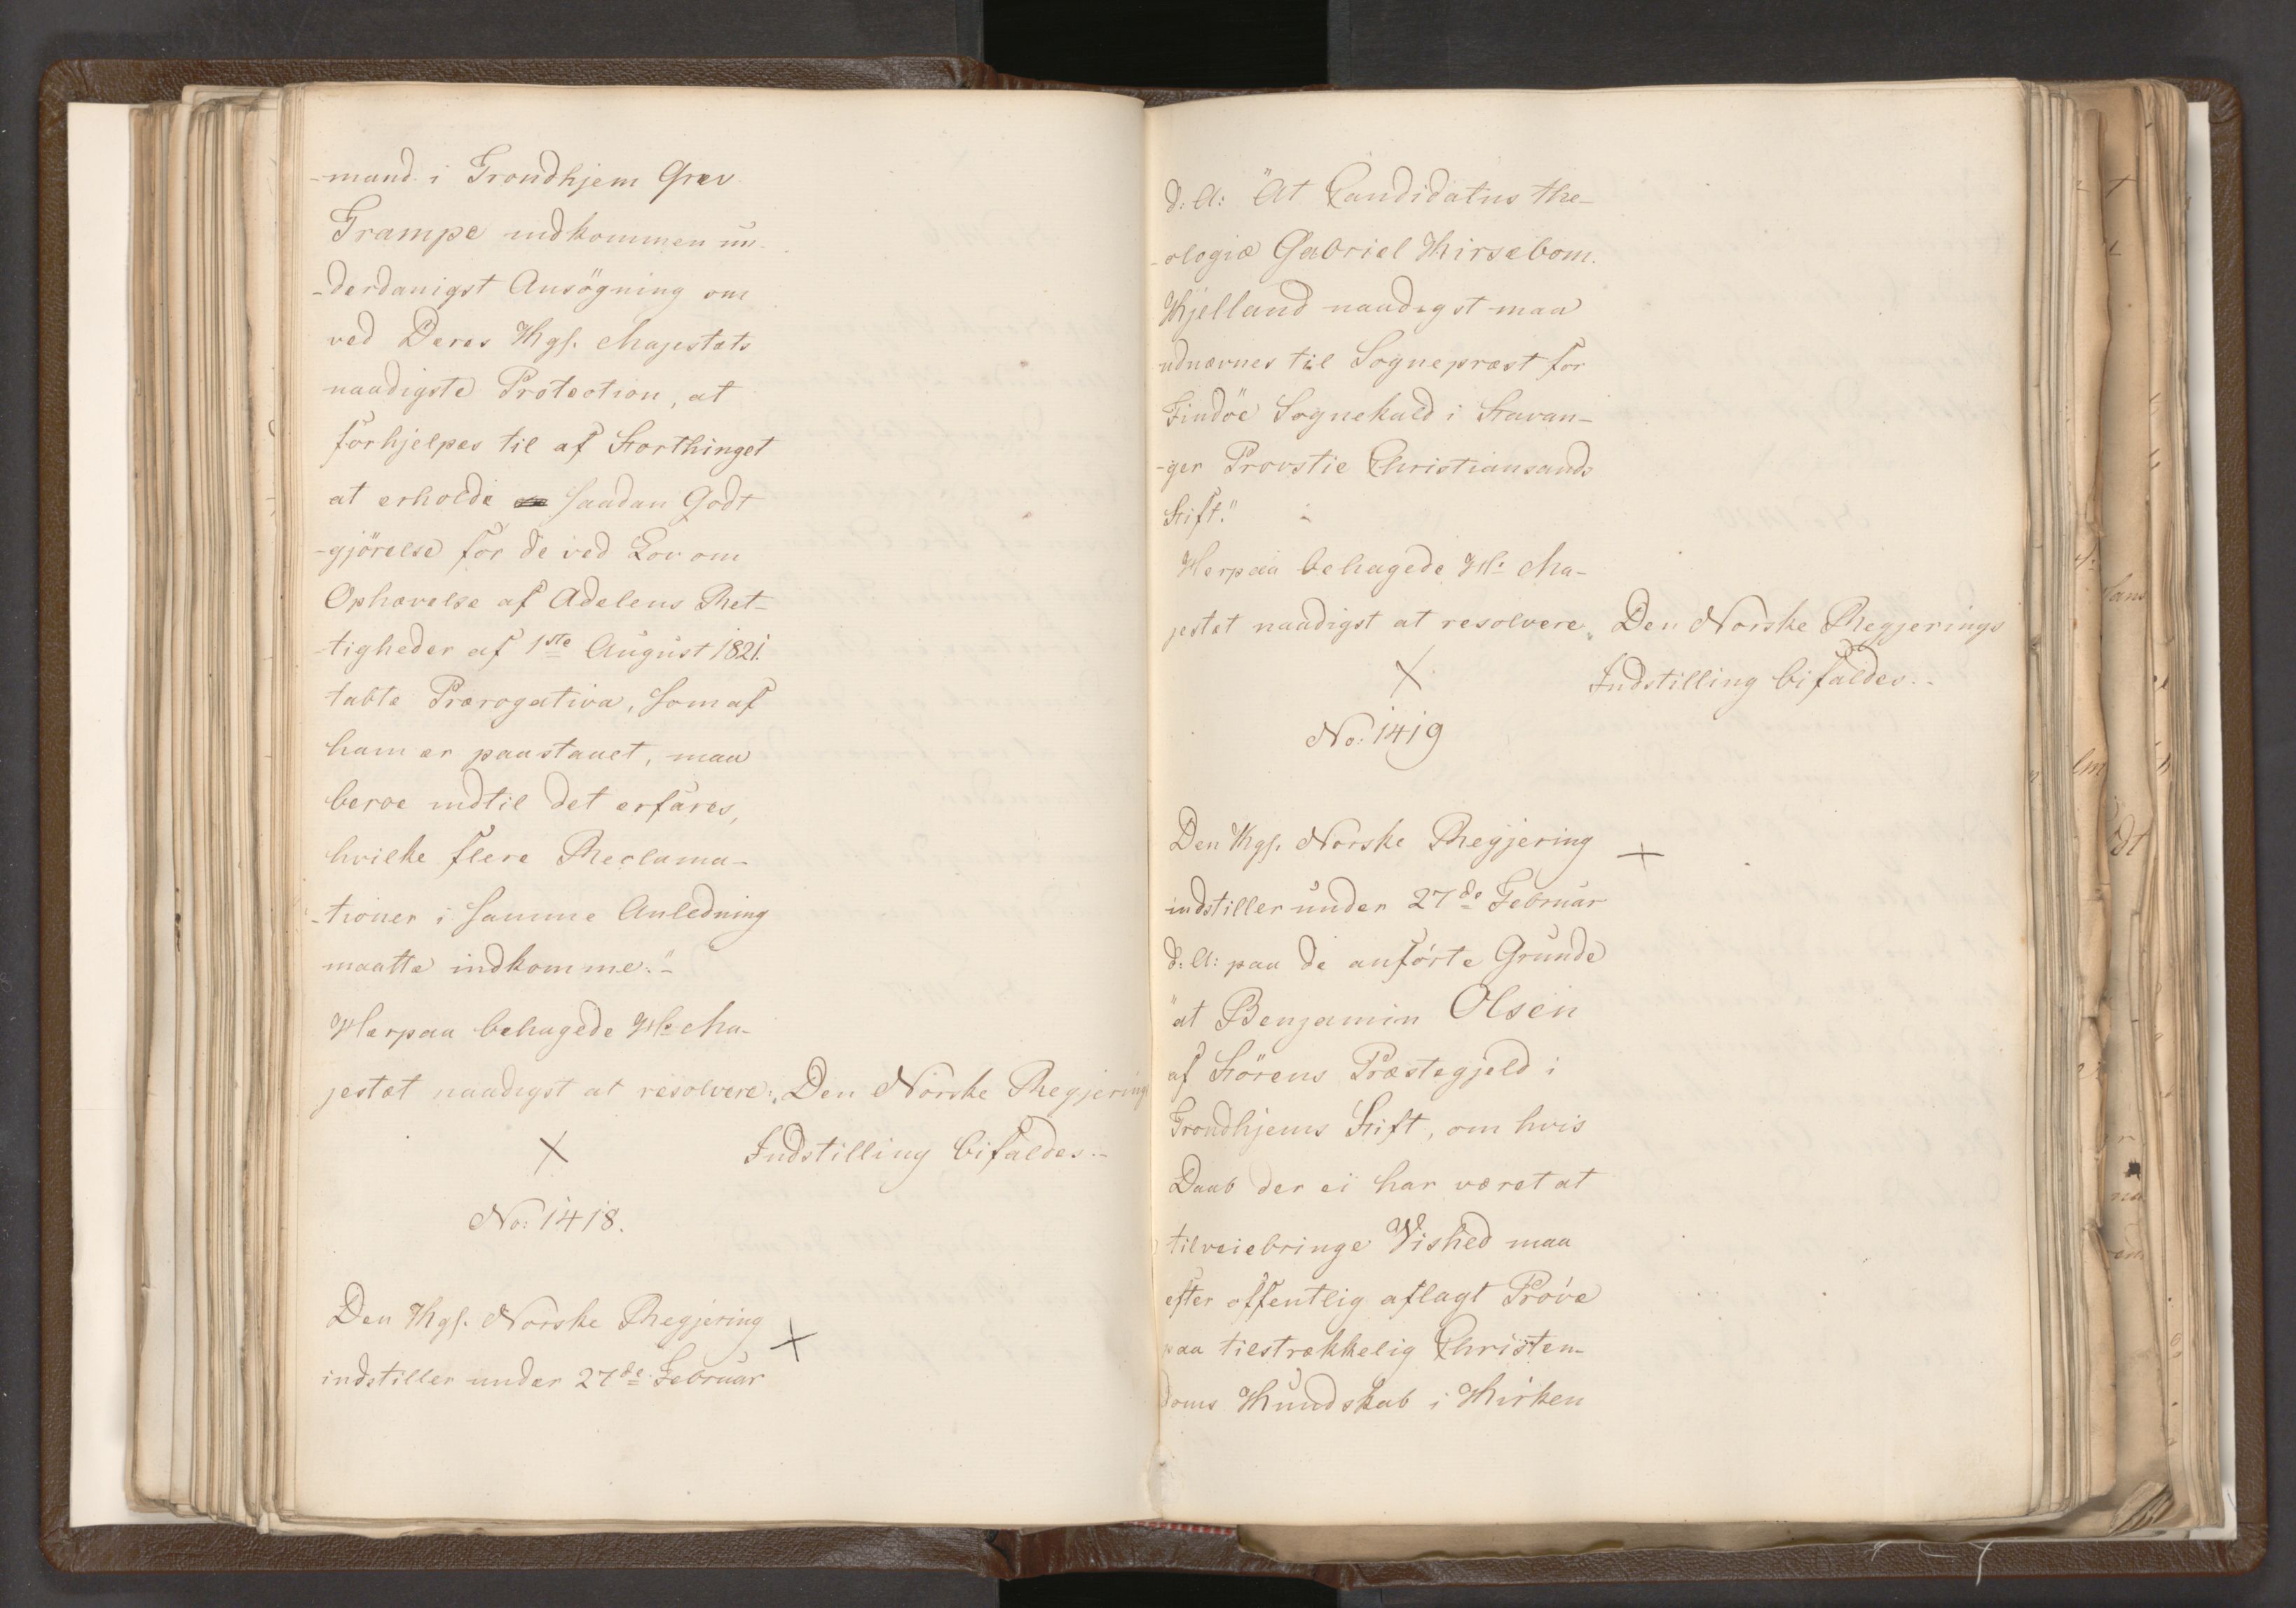 -mand i Trondhjem Grev
Trampe indkommen un-
-derdanigst Ansögning om
ved Deres Kgl. Majestæts
naadigste Protection, at
forhjelpes til af Storthinget
at erholde saadan Godt
-gjörelse for de ved Lov om
Ophævelse af Adelens Ret-
-tigheder af 1ste August 1821.
tabte Prærogativa, som af
ham er paastaaet, maa
beroe indtil det erfares,
hvilke flere Reclama-
-tioner i samme Anledning
maatte indkomme."-
Herpaa behagede Hs. Ma-
jestæt naadigst at resolvere: "Den Norske Regjerings
Indstilling bifaldes.-
No: 1418.
Den Kgl. Norske Regjering
indstiller under 27de Februar
d: A: "At Candidatus the-
-ologiæ Gabriel Kirsebom
Kjelland naadigst maa
udnævnes til Sognepræst for
Findöe Sognekald i Stavan-
-ger Provstie Christiansands
Stift."
Herpaa behagede Hs. Ma-
jestæt naadigst at resolvere "Den Norske Regjerings
Indstilling bifaldes.-
No: 1419
Den Kgl. Norske Regjering
indstiller under 27de Februar
d: A: paa de anförte Grunde
"at Benjamin Olsen
af Störens Præstegjeld i
Trondhjems Stift, om hvis
Daab der ei har været at
tilveiebringe Vished maa
efter offentlig aflagt Pröve
paa tilstrækkelig Christen-
doms Kundskab i Kirken